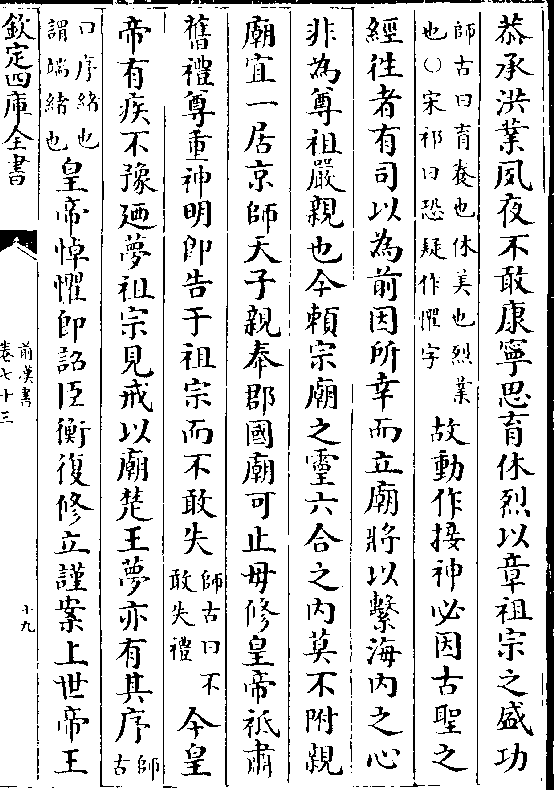 恭承洪業夙夜不敢康寧思育休烈以章祖宗之盛功
師古曰育養也休美也烈業
也○宋祁曰恐疑作懼字
故動作接神必因古聖之
經往者有司以為前因所幸而立廟將以繫海内之心
非為尊祖嚴親也今賴宗廟之靈六合之内莫不附親
廟宜一居京師天子親奉郡國廟可止毋修皇帝祗肅
舊禮尊重神明卽告于祖宗而不敢失
師古曰不
敢失禮
今皇
帝有疾不豫廼夢祖宗見戒以廟楚王夢亦有其序
師
古
曰序緒也
謂端緒也
皇帝悼懼卽詔臣衡復修立謹案上世帝王
欽定四庫全書
前漢書
卷七十三
十九